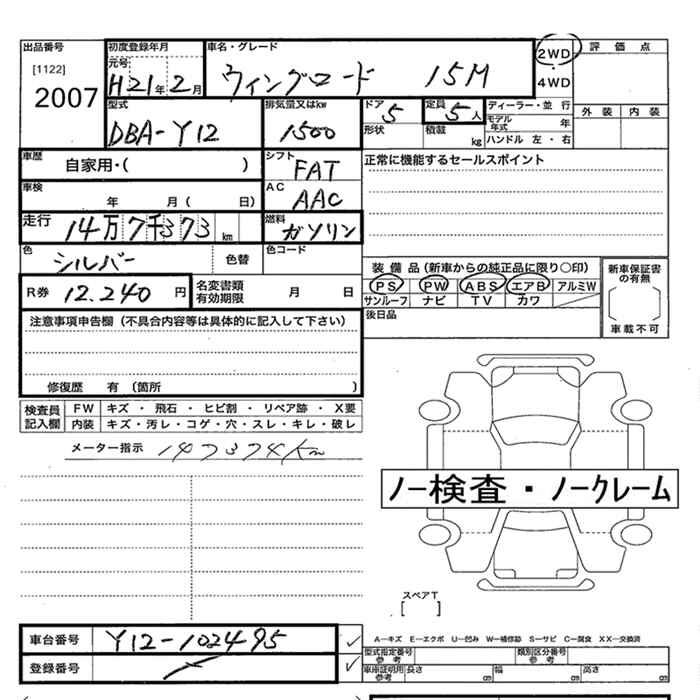 出品番号
[1122]
2007
初度登録年月
元号
H21年2月
車名・グレード
ウィングロード 15M
2WD
・
4WD
評価点
外装 内装
型式
DBA-Y12
排気量又はkw
1500
ドア 5
形状
定員 5人
積載 kg
ディーラー・並行
モデル年式 年
ハンドル 左・右
車歴
自家用・( )
シフト
FAT
正常に機能するセールスポイント
車検
年 月 ( 日)
AC
AAC
走行
14万7千373 km
燃料
ガソリン
色
シルバー
色替
色コード
R券 12.240 円
名変書類有効期限 月 日
装備品(新車からの純正品に限り○印)
PS PW ABS エアB アルミW
サンルーフ ナビ TV カワ
後日品
新車保証書の有無
車載不可
注意事項申告欄(不具合内容等は具体的に記入して下さい)
修復歴 有 (箇所 )
検査員記入欄
FW キズ・飛石・ヒビ割・リペア跡・X要
内装 キズ・汚レ・コゲ・穴・スレ・キレ・破レ
メーター指示 147374Km
ノー検査・ノークレーム
スペアT
[ ]
車台番号 Y12-102495
登録番号
A―キズ E―エクボ U―凹み W―補修跡 S―サビ C―腐食 XX―交換済
型式指定番号 参考
類別区分番号 参考
車庫証明用 参考 長さ cm 幅 cm 高さ cm